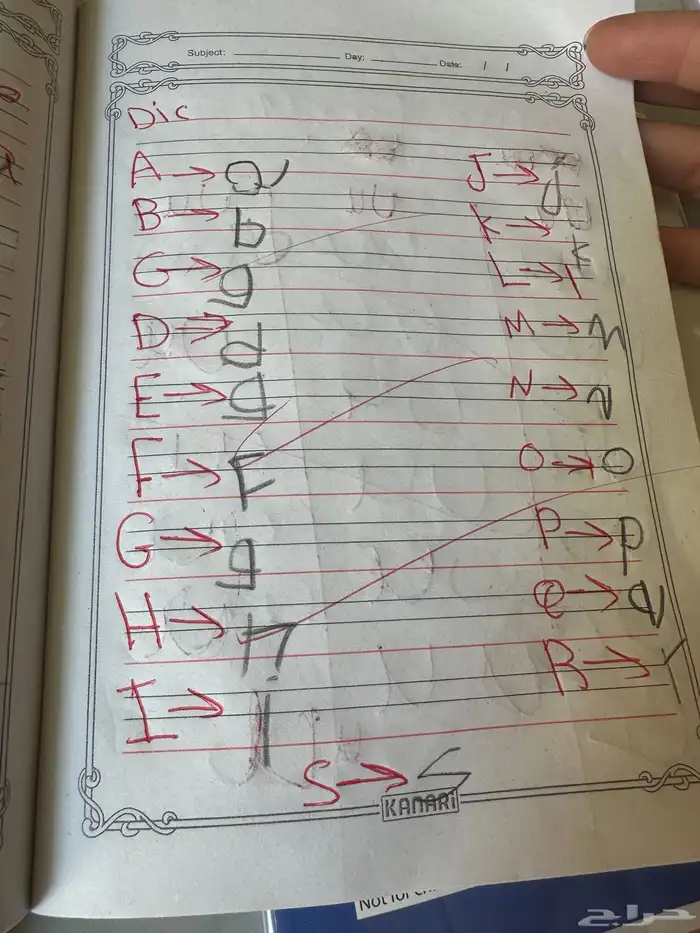 Subject: Day: Date: / /
Dic
A → a
B → b
G → g
D → d
E → g
F → F
G → g
H → h
I → i
J → j
K → k
L → l
M → m
N → n
O → o
P → p
Q → q
R → r
S → s
KANARi
Not for
حراج